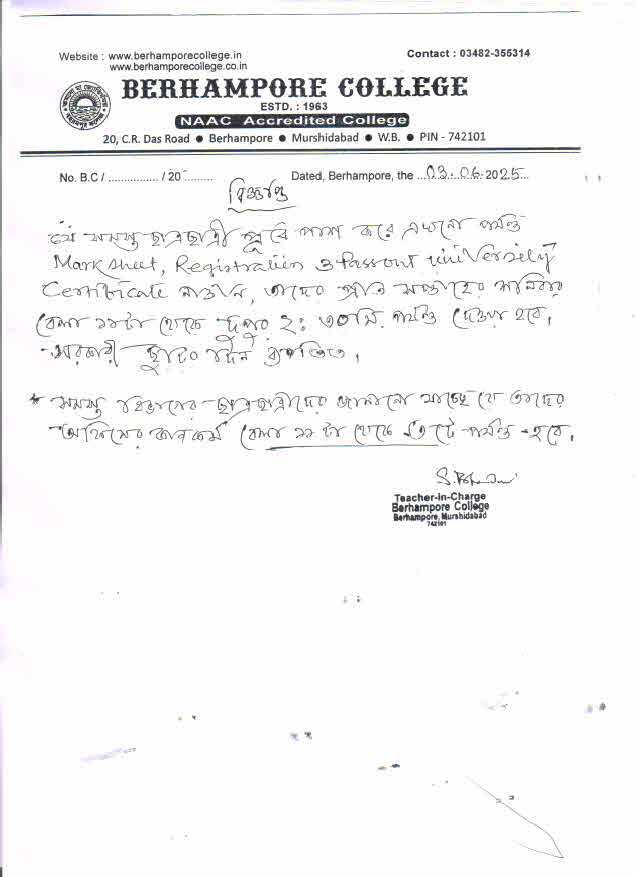 Website : www.berhamporecollege.in
www.berhamporecollege.co.in
Contact : 03482-355314
BERHAMPORE COLLEGE
ESTD. : 1963
NAAC Accredited College
20, C.R. Das Road ● Berhampore ● Murshidabad ● W.B. ● PIN - 742101
No. B.C / ................ / 20 .........
Dated, Berhampore, the ...03.06.2025...
বিজ্ঞপ্তি
যে সমস্ত ছাত্রছাত্রী পূর্বে পাশ করে এখনো পর্যন্ত
Mark sheet, Registration ও Passout university
Certificate নাওনি, তাদের প্রতি সপ্তাহের শনিবার
বেলা ১১টা থেকে দুপুর ২ঃ ৩০মি. পর্যন্ত দেওয়া হবে।
সরকারী ছুটির দিন
* সমস্ত বিভাগের ছাত্রছাত্রীদের জানানো যাচ্ছে যে তাদের
অফিসের কাজকর্ম বেলা ১১ টা থেকে ৩ টে পর্যন্ত হবে।
Teacher-In-Charge
Berhampore College
Berhampore, Murshidabad
742101